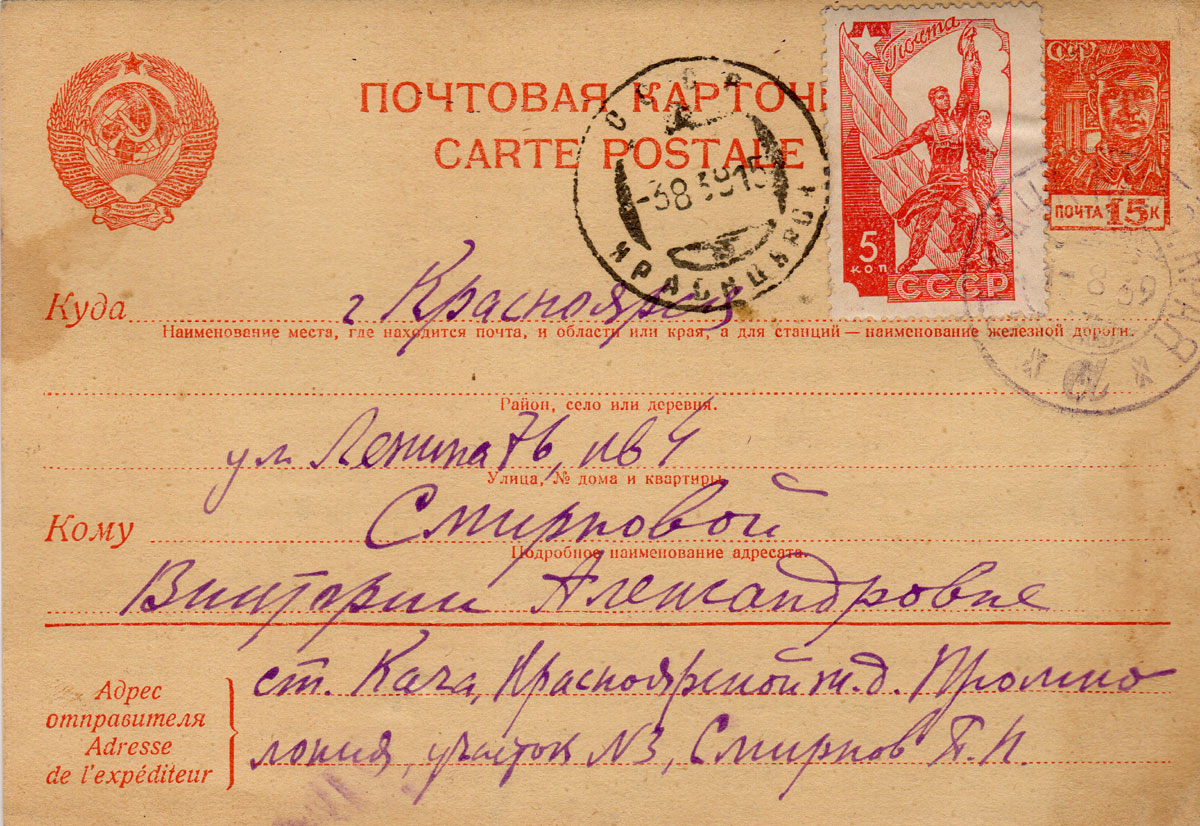 ПОЧТОВАЯ КАРТОЧ
CARTE POSTALE
СССР
-3 8 39 15
КРАСНОЯРСК
Почта
5
КОП
СССР
СССР
ПОЧТА 15 К
8 39
Куда г Красноярск
Наименование места, где находится почта, и области или края, а для станций — наименование железной дороги.
Район, село или деревня.
ул Ленина 76, кв 4
Улица, № дома и квартиры.
Кому Смирновой
Подробное наименование адресата.
Виктории Александровне
Адрес
отправителя
Adresse
de l'expéditeur
ст. Кача, Красноярской ж.д.
участок N3, Смирнов П.